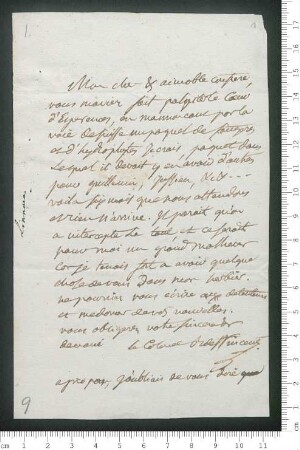 1.
Mon cher & aimable confrere,
vous m'aviez fait palpiter le Coeur
d'Esperance, en m'annoncant par la
voie de Suisse un paquet de fougeres
et d'hydrophytes; je crois, paquet dans
lequel il devait y en avoir d'autres
pour Guillemin, Jussieu, &c&
voila six mois que nous attendons
et rien n'arrive. Il parait qu'on
a intercepté le tout et ce serait
pour moi un grand malheur
car je tenais fort a avoir quelque
chose de vous dans mon herbier.
ne pourriez vous écrire
et me donner de vos nouvelles.
vous obligerez votre sincerement
devoué le Colonel
apropos, j'oubliais de vous dire que
Linnaea
9